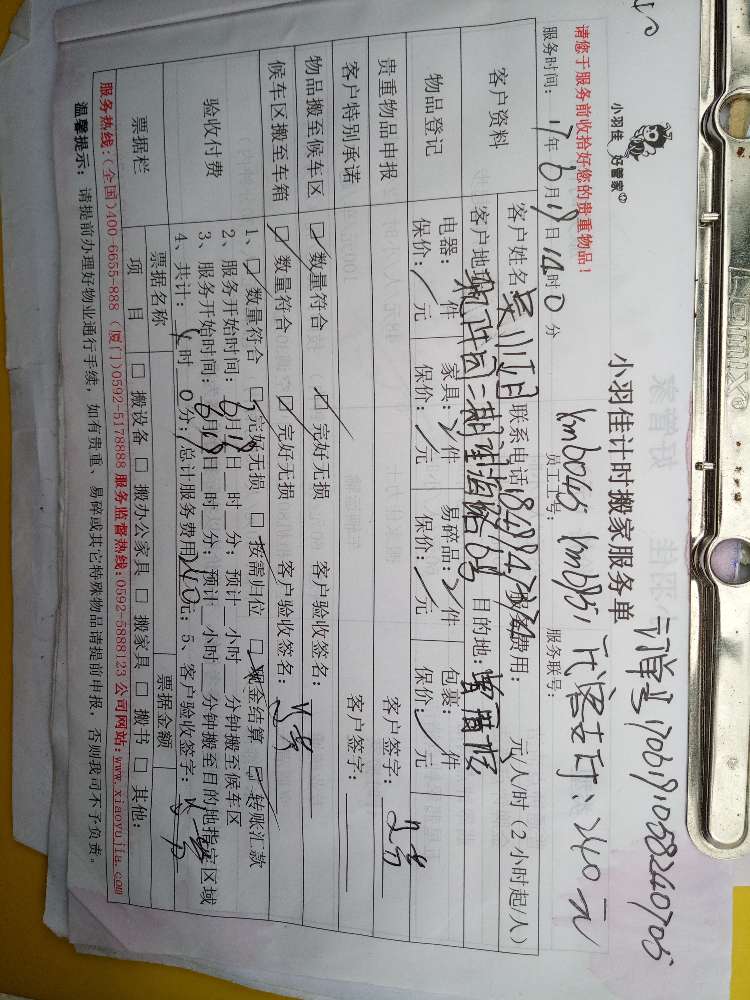 小羽佳 好管家
小羽佳计时搬家服务单
订单号1706191058240705
请您于服务前收拾好您的贵重物品!
员工工号: kmb045 kmb851
服务联号:
元
240元
服务时间: 17年6月19日 时0分
客户资料
客户姓名: 联系电话: 服务费用: 元/人/时(2小时起/人)
客户地址: 目的地:
物品登记
电器: 件 家具: 件 易碎品: 件 包裹: 件
保价: 元 保价: 元 保价: 元 保价: 元
贵重物品申报 客户签字:
客户特别承诺 客户签字:
物品搬至候车区 数量符合 完好无损 客户验收签名:
候车区搬至车箱 数量符合 完好无损 客户验收签名:
验收付费
1、 数量符合 完好无损 按需归位 现金结算 转账汇款
2、服务开始时间: 6月19日 时 分; 预计 小时 分钟搬至候车区
3、服务开始时间: 6月19日 时 分; 预计 小时 分钟搬至目的地指定区域
4、共计: 时0分; 总计服务费用240元; 5、客户验收签字:
票据栏
票据名称 票据金额
项 目 搬设备 搬办公家具 搬家具 搬书 其他:
服务热线:(全国)400-6655-888 (厦门)0592-5178888 服务监督热线:0592-5888123 公司网站:www.xiaoyujia.com
温馨提示: 请提前办理好物业通行手续, 如有贵重、易碎或其它特殊物品请提前申报, 否则我司不予负责。